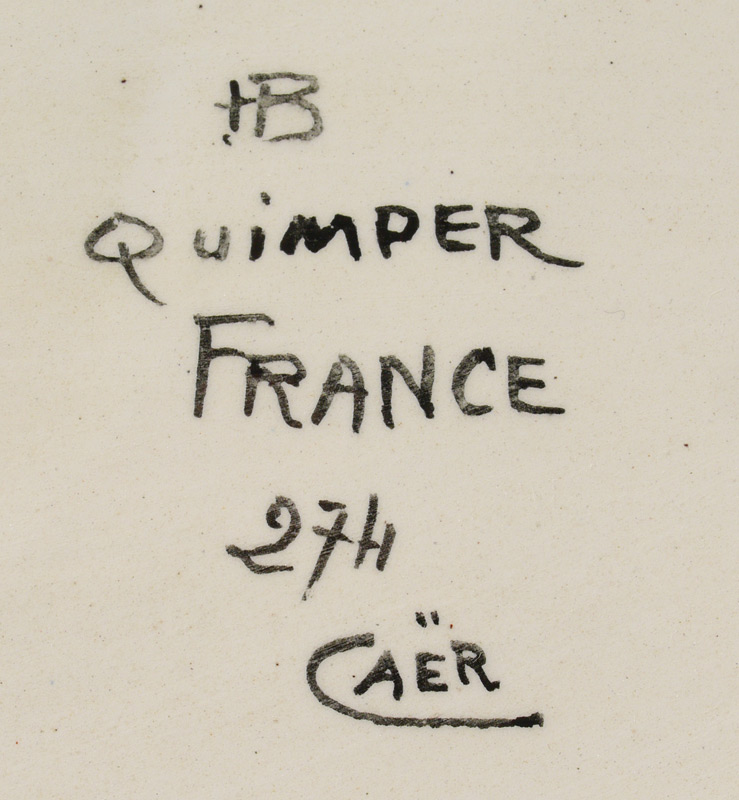 HB
QUiMPER
FRANCE
274
CAËR